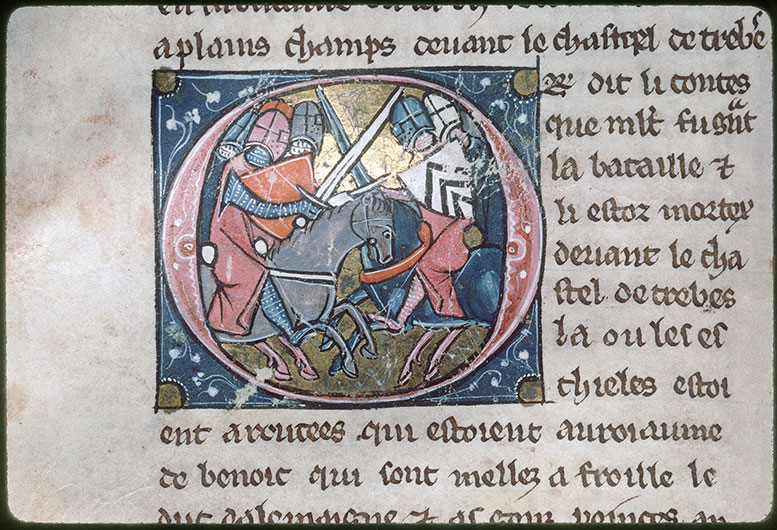 a plains champs deuant le chastel de treb̾e
Or dit li contes
que mlt̾ fu g̃nt
la bataille ⁊
li estoz mortex
deuant le cha
stel de trebes
la ou les es
chieles estoi
ent arcutees . qui estoient au roiaume
de benoic qui sont mellez a froille le
duc dalemaigne ⁊ as